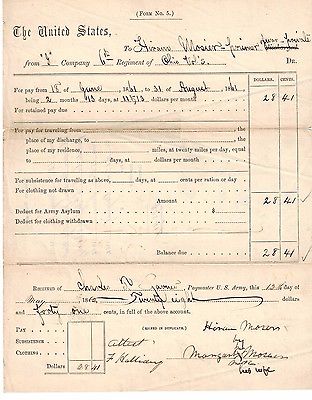 (FORM No. 5.)
The United States,
To Hiram Mosier
from "I" Company 6th Regiment of Ohio Vol's DR.
DOLLARS. CENTS.
For pay from 18th of June 1861 to 31 of August 1861
being 2 months 13 days at 11 & 13 dollars per month 28 41
For retained pay due
For pay for traveling from
the place of my discharge, to
place of my residence, miles, at twenty miles per day, equal
to days, at dollars per month
For subsistence for traveling as above, days, at cents per ration or day
For clothing not drawn 28 41
Deduct for Army Asylum
Deduct for clothing withdrawn
Balance due 28 41
RECEIVED of Charles Paymaster U. S. Army, this
May 186 Twenty eight dollars
and forty one cents, in full of the above account.
(SIGNED IN DUPLICATE.)
PAY
SUBSISTENCE
CLOTHING
28 41
Attest
Hiram
by
Margaret
his wife